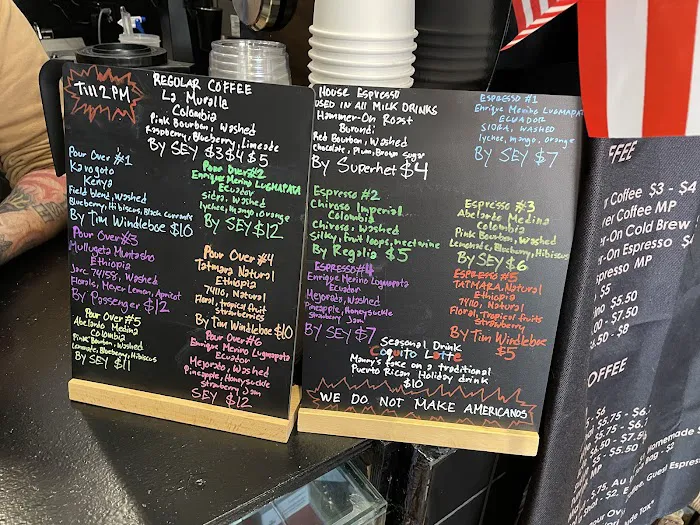 Till 2 PM
REGULAR COFFEE
La Muralla
Colombia
Pink Bourbon, Washed
Raspberry, Blueberry, Limeade
By SEY $3 $4 $5
Pour Over #1
Kavogoto
Kenya
Field blend, washed
Blueberry, Hibiscus, Black currants
By Tim Windleboe $10
Pour Over #2
Enrique Merino LUGMAPATA
Ecuador
Sidra, washed
lychee, mango, orange
By SEY $12
Pour Over #3
Mullugeta Muntasho
Ethiopia
Jarc 74158, Washed
Florals, Meyer Lemon, Apricot
By Passenger $12
Pour Over #4
Tatmara Natural
Ethiopia
74110, Natural
Floral, tropical fruit
Strawberries
By Tim Windleboe $10
Pour Over #5
Abelardo Medina
Colombia
Pink Bourbon, Washed
Lemonade, Blueberry, Hibiscus
By SEY $11
Pour Over #6
Enrique Merino Lugmapata
Ecuador
Mejorato, Washed
Pineapple, Honeysuckle
Strawberry Jam
SEY $12
House Espresso
USED IN ALL MILK DRINKS
Hammer-On Roast
Burundi
Red Bourbon, Washed
Chocolate, Plum, Brown Sugar
By Superhet $4
ESPRESSO #1
Enrique Merino LUGMAPATA
ECUADOR
SIDRA, WASHED
lychee, mango, orange
By SEY $7
Espresso #2
Chiroso Imperial
Colombia
Chiroso, Washed
Silky, fruit loops, nectarine
By Regalia $5
Espresso #3
Abelardo Medina
Colombia
Pink Bourbon, Washed
Lemonade, Blueberry, Hibiscus
By SEY $6
ESPRESSO #4
Enrique Merino Lugmapata
Ecuador
Mejorato, Washed
Pineapple, Honeysuckle
Strawberry Jam
By SEY $7
ESPRESSO #5
TATMARA, Natural
Ethiopia
74110, Natural
Floral, Tropical fruits
Strawberry
By Tim Windleboe
$5
Seasonal Drink
Coquito Latte
Manny's take on a traditional
Puerto Rican Holiday drink
$10
WE DO NOT MAKE AMERICANOS
FFEE
Coffee $3 - $4
er Coffee MP
r-On Cold Brew
r-On Espresso $
spresso MP
$5
$5.50
- $7.50
6.50 - $8
OFFEE
- $6
$5.75 - $6.
- $5.50
Homemade
Bag - $2
Guest Espres